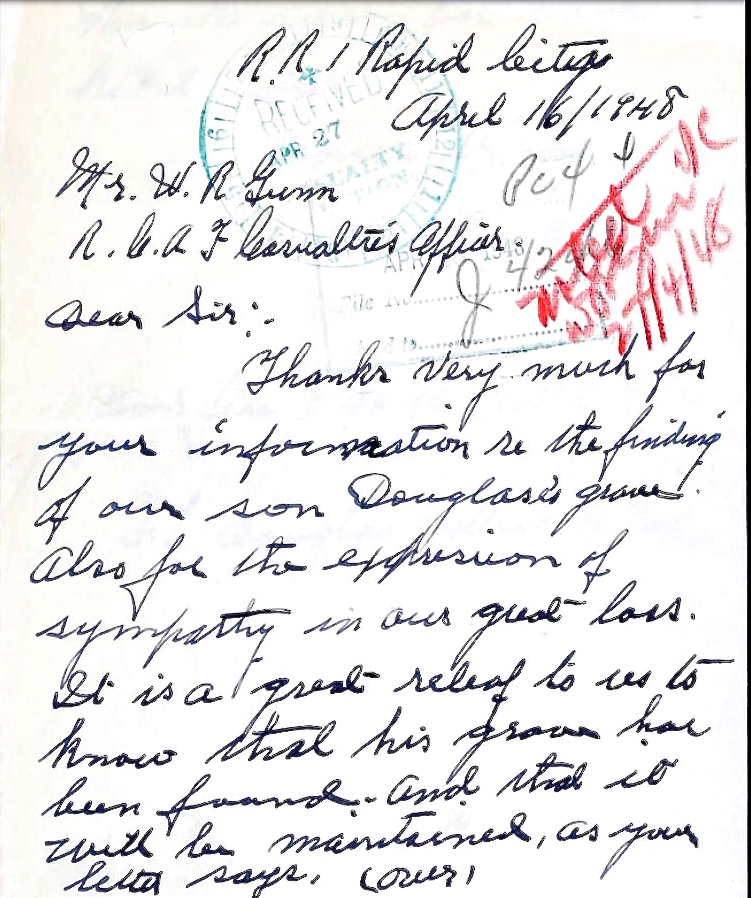 R.R. 1 Rapid City
April 16/1948
RECEIVED
APR 27
Mr. W. R Gunn
R.C.A.F Casualties Officer
P64
J 42
APR 1948
File No.
Noted
27/4/48
Dear Sir:-
Thanks very much for
your information re the finding
of our son Douglase's grave.
Also for the expresion of
sympathy in our great loss.
It is a great releaf to us to
know that his grave has
been found. And that it
will be maintained, as your
letter says. (over)